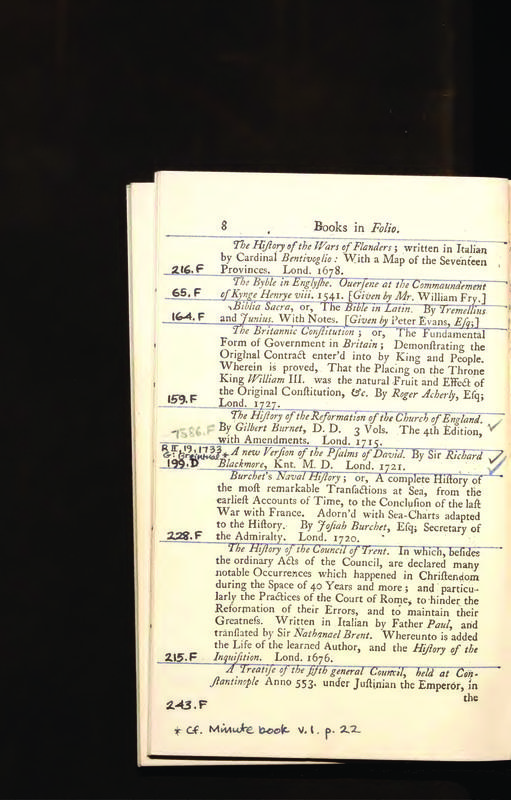 8 Books in Folio.
The Hiſtory of the Wars of Flanders; written in Italian
by Cardinal Bentivoglio: With a Map of the Seventeen
216.F Provinces. Lond. 1678.
The Byble in Englyſhe. Ouerſene at the Commaundement
65.F of Kynge Henrye viii. 1541. [Given by Mr. William Fry.]
Biblia Sacra, or, The Bible in Latin. By Tremellius
164.F and Junius. With Notes. [Given by Peter Evans, Eſq;]
The Britannic Conſtitution; or, The Fundamental
Form of Government in Britain; Demonſtrating the
Original Contract enter'd into by King and People.
Wherein is proved, That the placing on the Throne
King William III. was the natural Fruit and Effect of
the Original Conſtitution, &c. By Roger Acherly, Eſq;
159.F Lond. 1727.
The Hiſtory of the Reformation of the Church of England.
7586.F By Gilbert Burnet, D. D. 3 Vols. The 4th Edition, ✓
with Amendments. Lond. 1715.
R II, 19, 1733 * A new Verſion of the Pſalms of David. By Sir Richard ✓
199.D Blackmore, Knt. M. D. Lond. 1721. ✓
Burchet's Naval Hiſtory; or, A complete Hiſtory of
the moſt remarkable Tranſactions at Sea, from the
earlieſt Accounts of Time, to the Concluſion of the laſt
War with France. Adorn'd with Sea-Charts adapted
to the Hiſtory. By Joſiah Burchet, Eſq; Secretary of
228.F the Admiralty. Lond. 1720.
The Hiſtory of the Council of Trent. In which, beſides
the ordinary Acts of the Council, are declared many
notable Occurrences which happened in Chriſtendom
during the Space of 40 Years and more; and particu-
larly the Practices of the Court of Rome, to hinder the
Reformation of their Errors, and to maintain their
Greatneſs. Written in Italian by Father Paul, and
tranſlated by Sir Nathanael Brent. Whereunto is added
the Life of the learned Author, and the Hiſtory of the
215.F Inquiſition. Lond. 1676.
A Treatiſe of the fifth general Council, held at Con-
ſtantinople Anno 553. under Juſtinian the Emperor, in
the
243.F
* Cf. Minute book v.1. p. 22